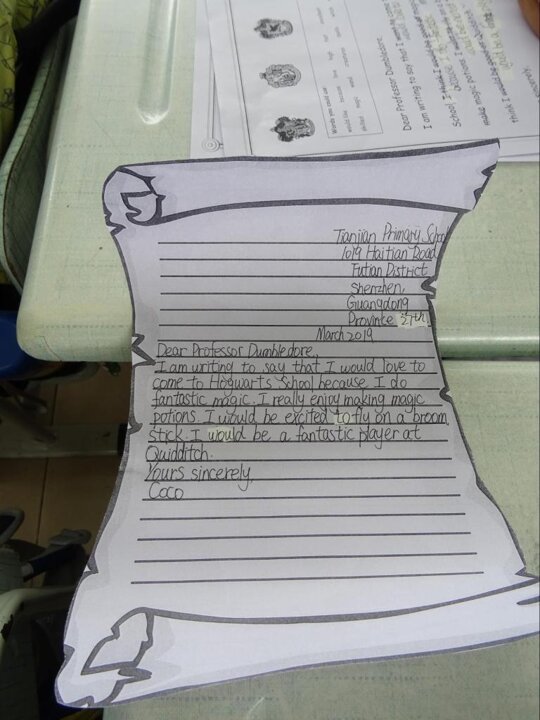 Words you could use
Dear Professor Dumbledore,
I am writing to say that I
School
make magic potions
think I would be
Tianjian Primary School
1019 Haitian Road
Futian District
Shenzhen,
Guangdong
Province 27th
March 2019
Dear Professor Dumbledore,
I am writing to say that I would love to
come to Hogwarts School because I do
fantastic magic. I really enjoy making magic
potions. I would be excited to fly on a broom
stick. I would be a fantastic player at
Quidditch.
Yours sincerely,
Coco